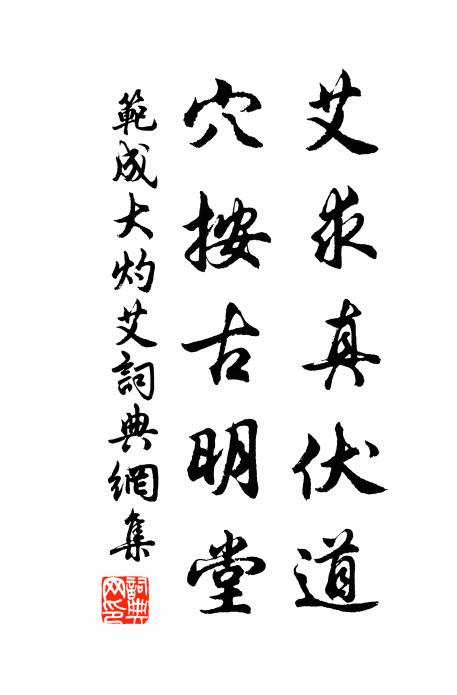 艾求真伏道
穴按古明堂
範成大灼艾詞典網集
詞典網印